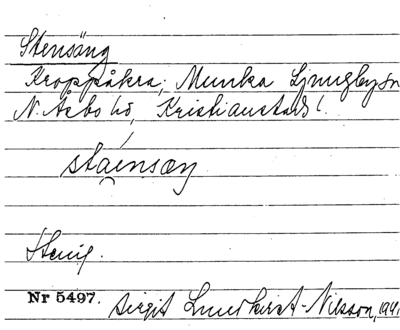 Stensäng
Kroppåkra, Munka Ljungby sn
N. Åsbo hd, Kristianstads l.
Stenig.
Nr 5497. Birgit Lundkvist-Nilsson, 1941